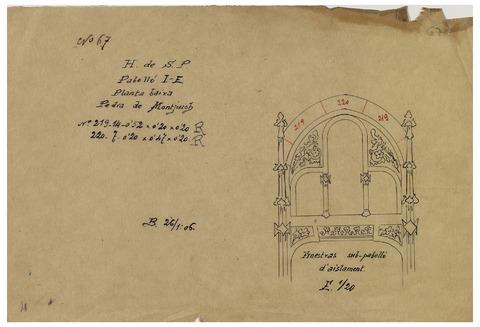 Nº 67
H. de S. P
Pabelló I-E
Planta baixa
Pedra de Montjuich
Nº 219-14-0'52 x 0'20 x 0'20 R
220-7-0'20 x 0'47 x 0'20 R
B. 26/1:06.
219
220
219
Finestras sub-pabelló
d'aislament.
E. 1/20